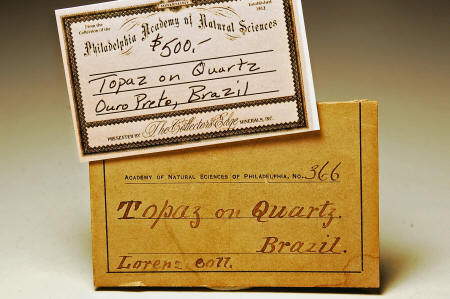 From the
Collection of the
Established
1812
Philadelphia Academy of Natural Sciences
$500.-
Topaz on Quartz
Ouro Preto, Brazil
PRESENTED BY The Collector's Edge MINERALS, INC.
ACADEMY OF NATURAL SCIENCES OF PHILADELPHIA, NO. 366
Topaz on Quartz.
Brazil.
Lorenz coll.